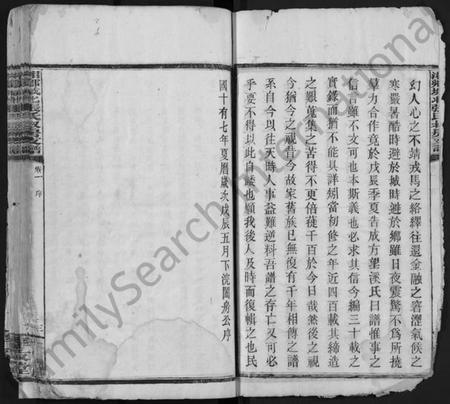 幻人心之不靖戎馬之絡繹往還金融之窘澀氣候之
寒嚴暑酷時避於城時避於鄉雖日夜震驚不為所撓
羣力合作竟於戊辰季夏告成方望溪氏曰譜惟事之
信言雖不文可也本斯義也必求其信今編三十載之
實錄而猶不能具詳矧當初餘之年近四百載其締造
之艱蒐集之苦得不更倍徙千百於今日哉然後之視
今猶今之視昔今故家舊族已無復有千年相傳之譜
系自今以往天時人事益難逆料吾譜之存亡又可必
乎要不得以此自諉也願我後人及時而復輯之也民
國十有七年夏曆歲次戊辰五月下浣闔房公序
卷一 序
FamilySearch International